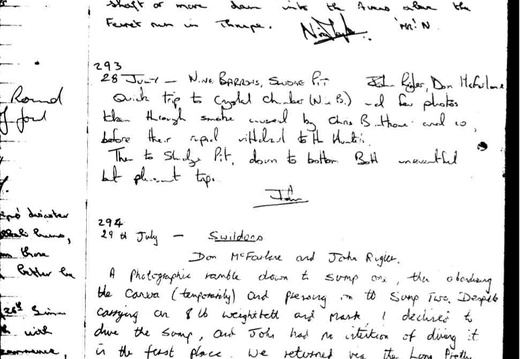 shaft or more down into the Aven above the
Ferret run in Thrupe.
293
28 July - Nine Barrows, Sludge Pit John Rigler, Don McFarlane
Quick trip to Crystal Chamber (N.B.) and few photos
taken through smoke caused by Chris B and co,
before their rapid withdrawal to the Hunters.
Then to Sludge Pit, down to bottom. Both uneventful
but pleasant trips.
John
294
29th July - Swildons
Don McFarlane and John Rigler.
A photographic ramble down to sump one, then abandoning
the Camera (temporarily) and pressing on to Sump Two. Despite
carrying an 8 lb weightbelt and mask I declined to
dive the sump, and John had no intention of diving it
in the first place. We returned via the Long Prolly
Round
of foul
disaster
those
with